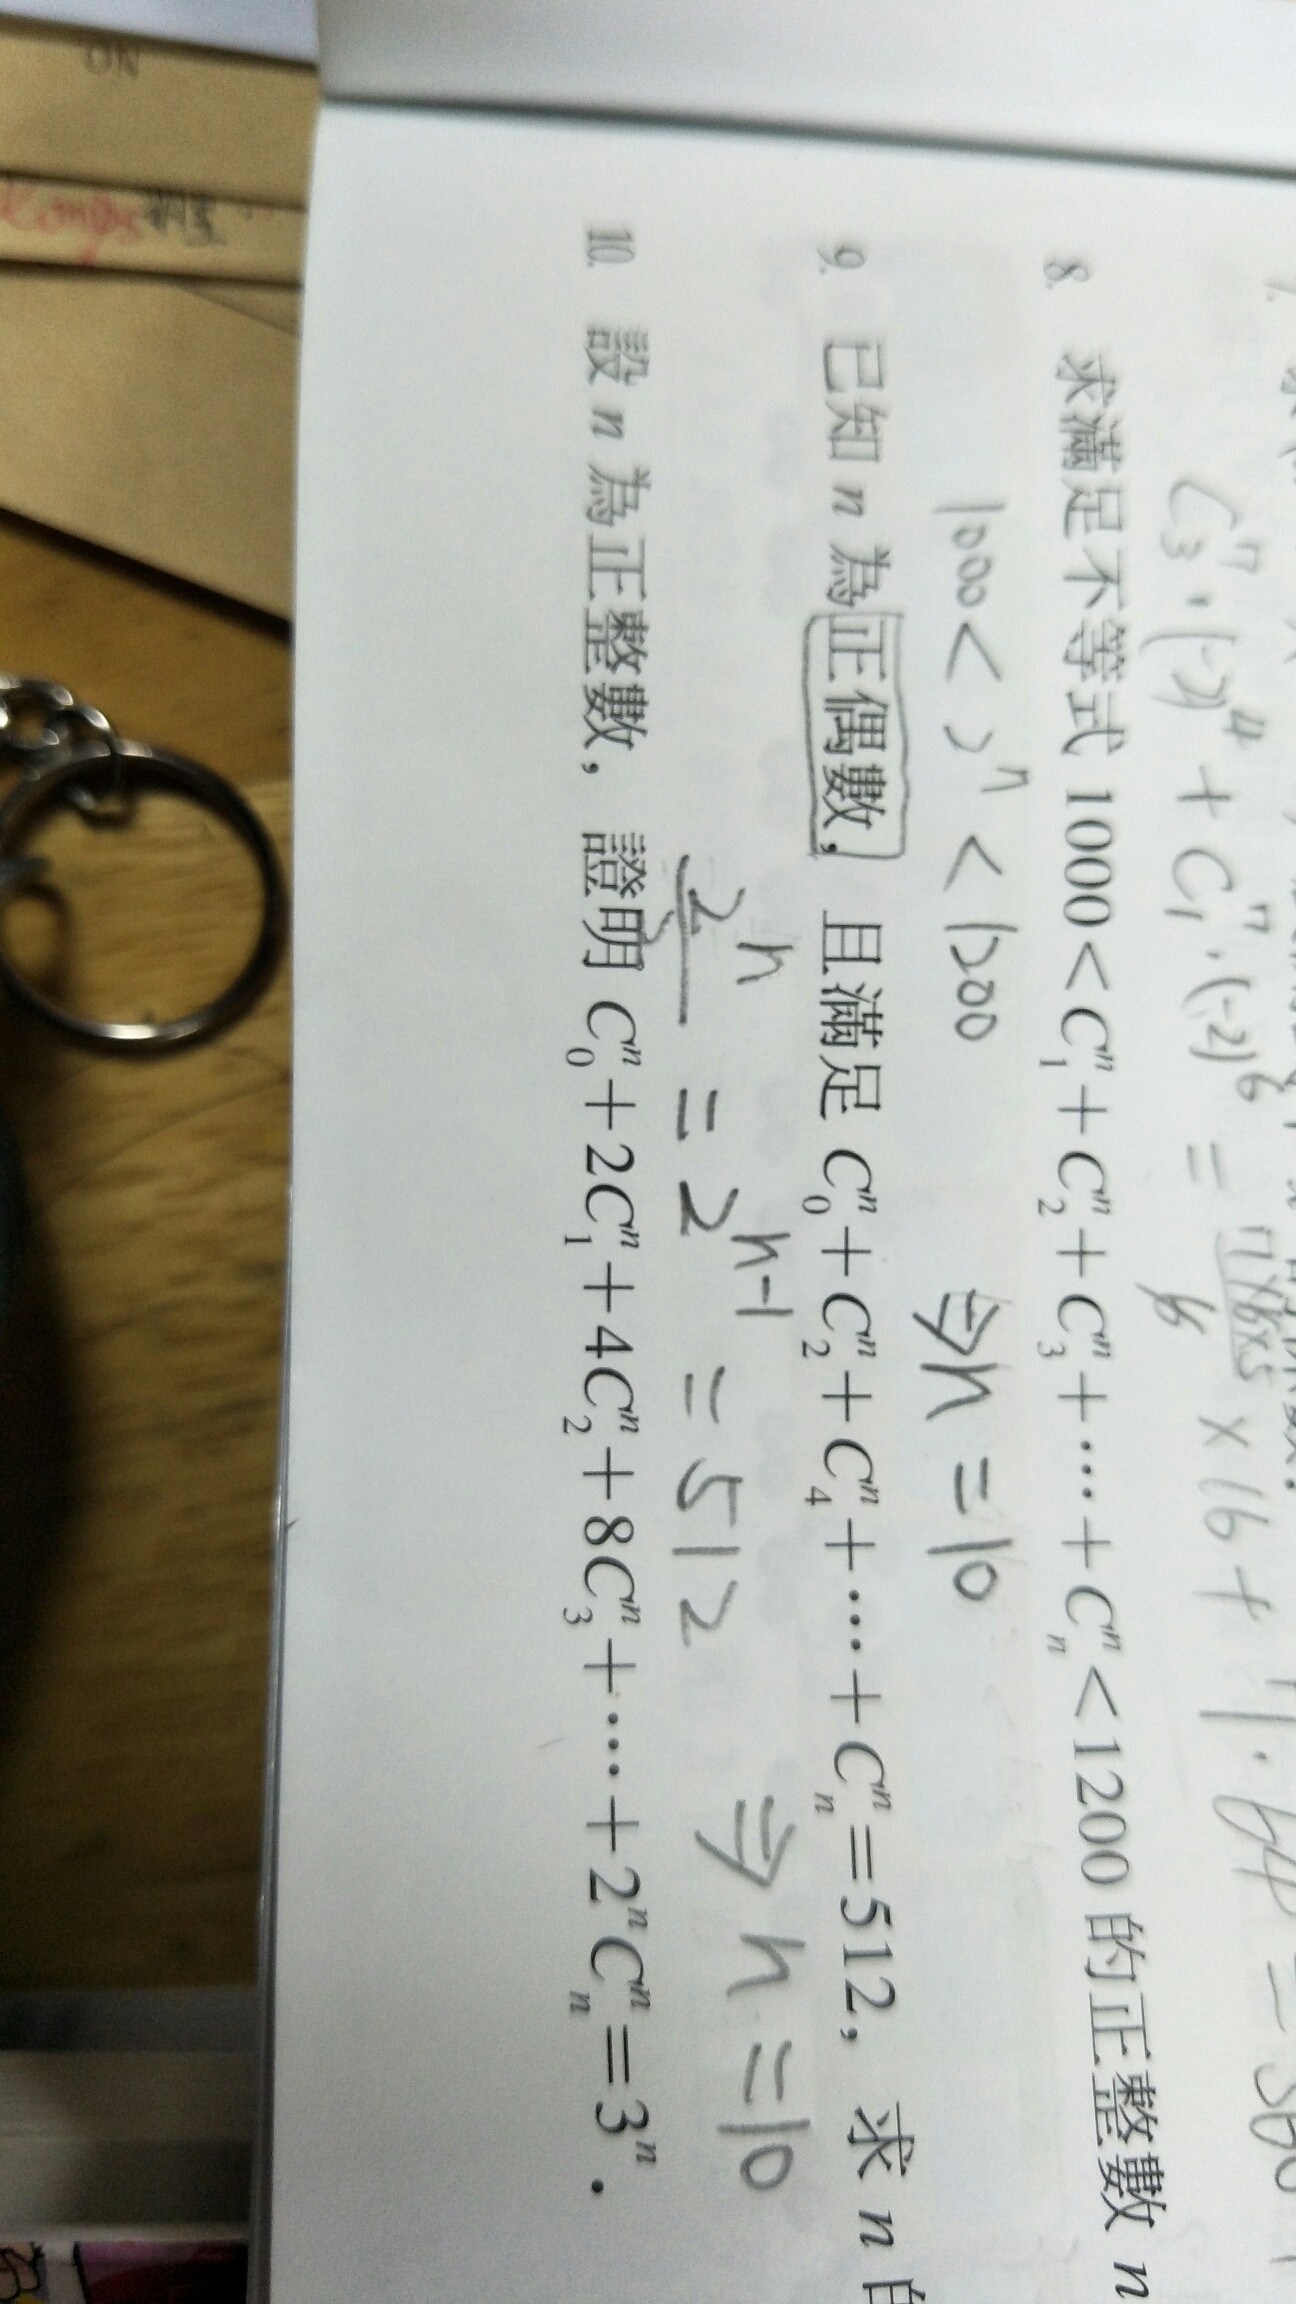 C₃⁷·(-2)⁴ + C₁⁷·(-2)⁶ = 7×6×5 / 6 × 16 +
8. 求滿足不等式 1000<C₁ⁿ+C₂ⁿ+C₃ⁿ+⋯+Cₙⁿ<1200 的正整數 n
1000 < 2ⁿ < 1200 ⇒ n = 10
9. 已知 n 為正偶數，且滿足 C₀ⁿ+C₂ⁿ+C₄ⁿ+⋯+Cₙⁿ=512，求 n 的
2ⁿ / 2 = 2ⁿ⁻¹ = 512 ⇒ n = 10
10. 設 n 為正整數，證明 C₀ⁿ+2C₁ⁿ+4C₂ⁿ+8C₃ⁿ+⋯+2ⁿCₙⁿ=3ⁿ．
ON